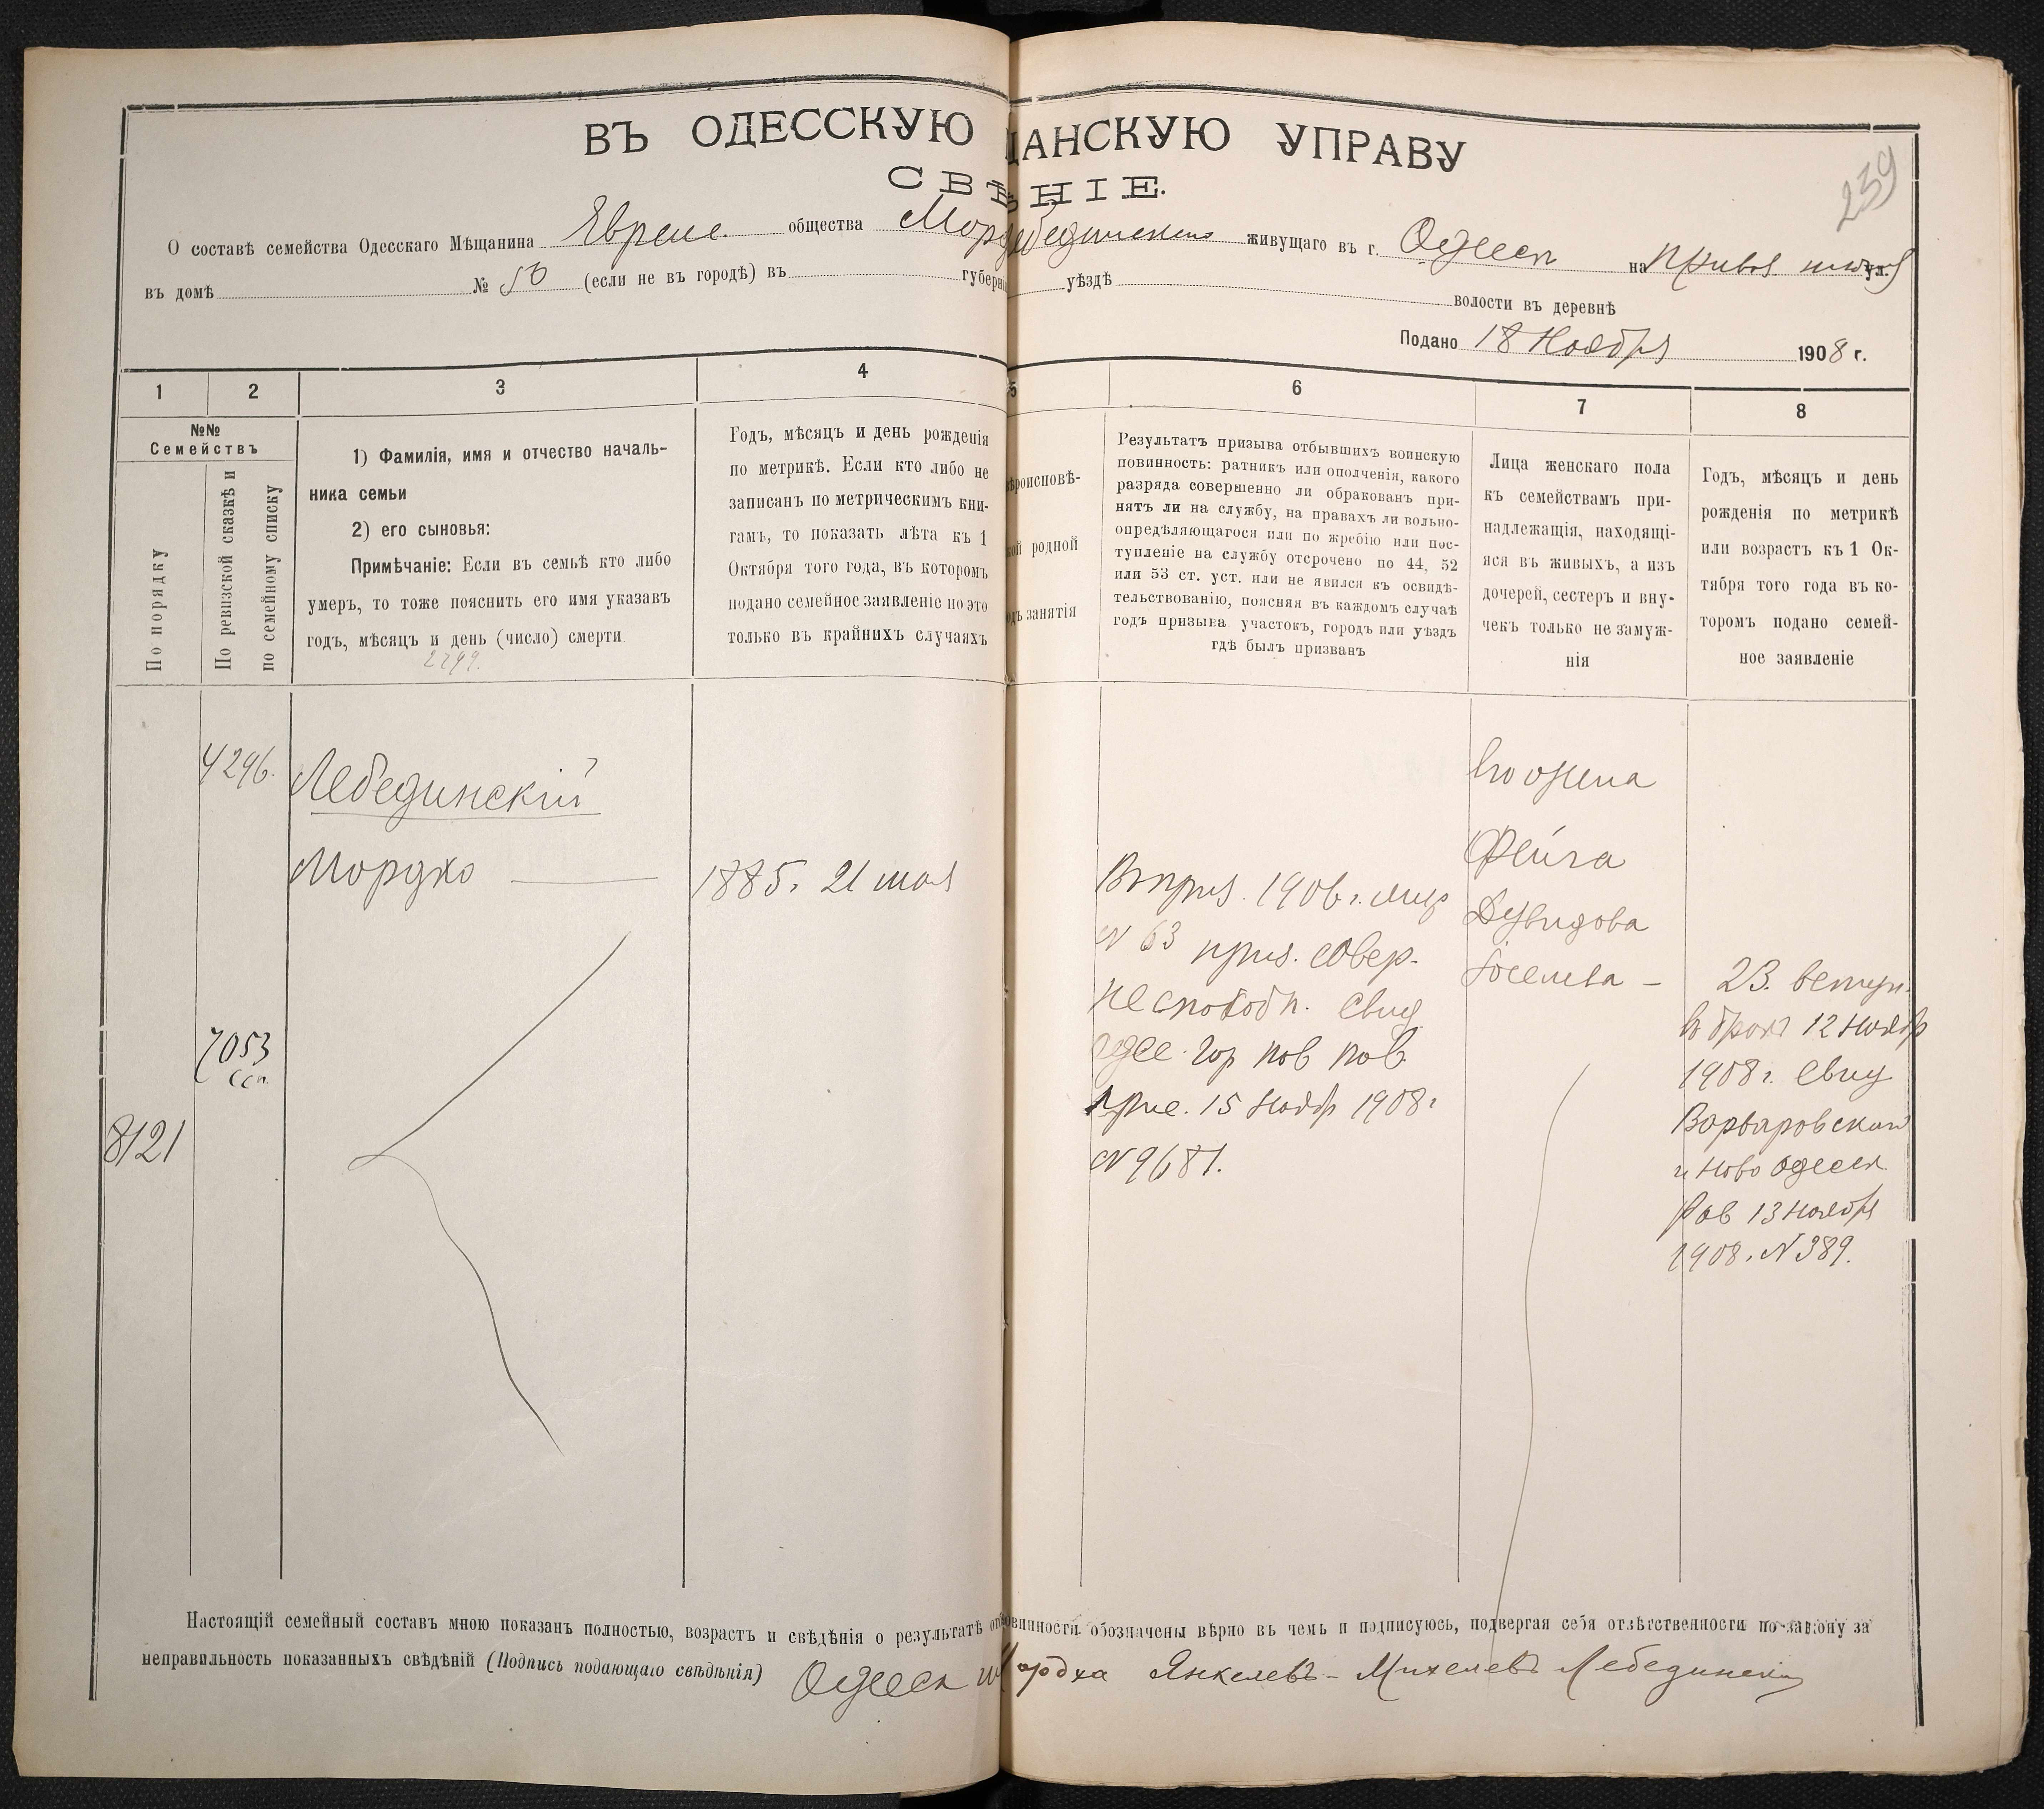 ВЪ ОДЕССКУЮ ЩАНСКУЮ УПРАВУ
239
СВѢ НІЕ.
О составѣ семейства Одесскаго Мѣщанина Евреис. общества Морд Лебединскаго живущаго въ г. Одессѣ на ул.
въ домѣ № (если не въ городѣ) въ губерніи уѣздѣ волости въ деревнѣ
Подано 18 Ноября 1908 г.
1 2 3 4 5 6 7 8
№№ Семействъ
По порядку
По ревизской сказкѣ и по семейному списку
1) Фамилія, имя и отчество началь-
ника семьи
2) его сыновья:
Примѣчаніе: Если въ семьѣ кто либо
умеръ, то тоже пояснить его имя указавъ
годъ, мѣсяцъ и день (число) смерти
2299.
Годъ, мѣсяцъ и день рожденія
по метрикѣ. Если кто либо не
записанъ по метрическимъ кни-
гамъ, то показать лѣта къ 1
Октября того года, въ которомъ
подано семейное заявленіе но это
только въ крайнихъ случаяхъ
ѣроисповѣ-
кой родной
одъ занятія
Результатъ призыва отбывшихъ воинскую
повинность: ратникъ или ополченія, какого
разряда совершенно ли обракованъ при-
нятъ ли на службу, на правахъ ли вольно-
опредѣляющагося или по жребію или пос-
тупленіе на службу отсрочено по 44, 52
или 53 ст. уст. или не явился къ освидѣ-
тельствованію, поясняя въ каждомъ случаѣ
годъ призыва участокъ, городъ или уѣздъ
гдѣ былъ призванъ
Лица женскаго пола
къ семействамъ при-
надлежащія, находящі-
яся въ живыхъ, а изъ
дочерей, сестеръ и вну-
чекъ только не замуж-
нія
Годъ, мѣсяцъ и день
рожденія по метрикѣ
или возрастъ къ 1 Ок-
тября того года въ ко-
торомъ подано семей-
ное заявленіе
8121
4296.
7053
ссп.
Лебединскій
Мордко
1885. 21 мая
Въ приз. 1906 г.
N 63 приз. совер.
неспособн. Свид
Одес. гор по в пов
прис. 15 Ноябр 1908 г
N 9681.
Его жена
Фейга
Дувидова
Іоселева —
23. вступ.
в бракъ 12 Ноябр
1908 г. Свид
Варваровскаго
и Ново Одесск.
Рав 13 Ноября
1908. N 389.
Настоящій семейный составъ мною показанъ полностью, возрастъ и свѣдѣнія о результатѣ от овинности обозначены вѣрно въ чемъ и подписуюсь, подвергая себя отвѣтственности по закону за
неправильность показанныхъ свѣдѣній (Подпись подающаго свѣдѣнія) Одесск м Мордха Янкелевъ-Михелевъ Лебединскій